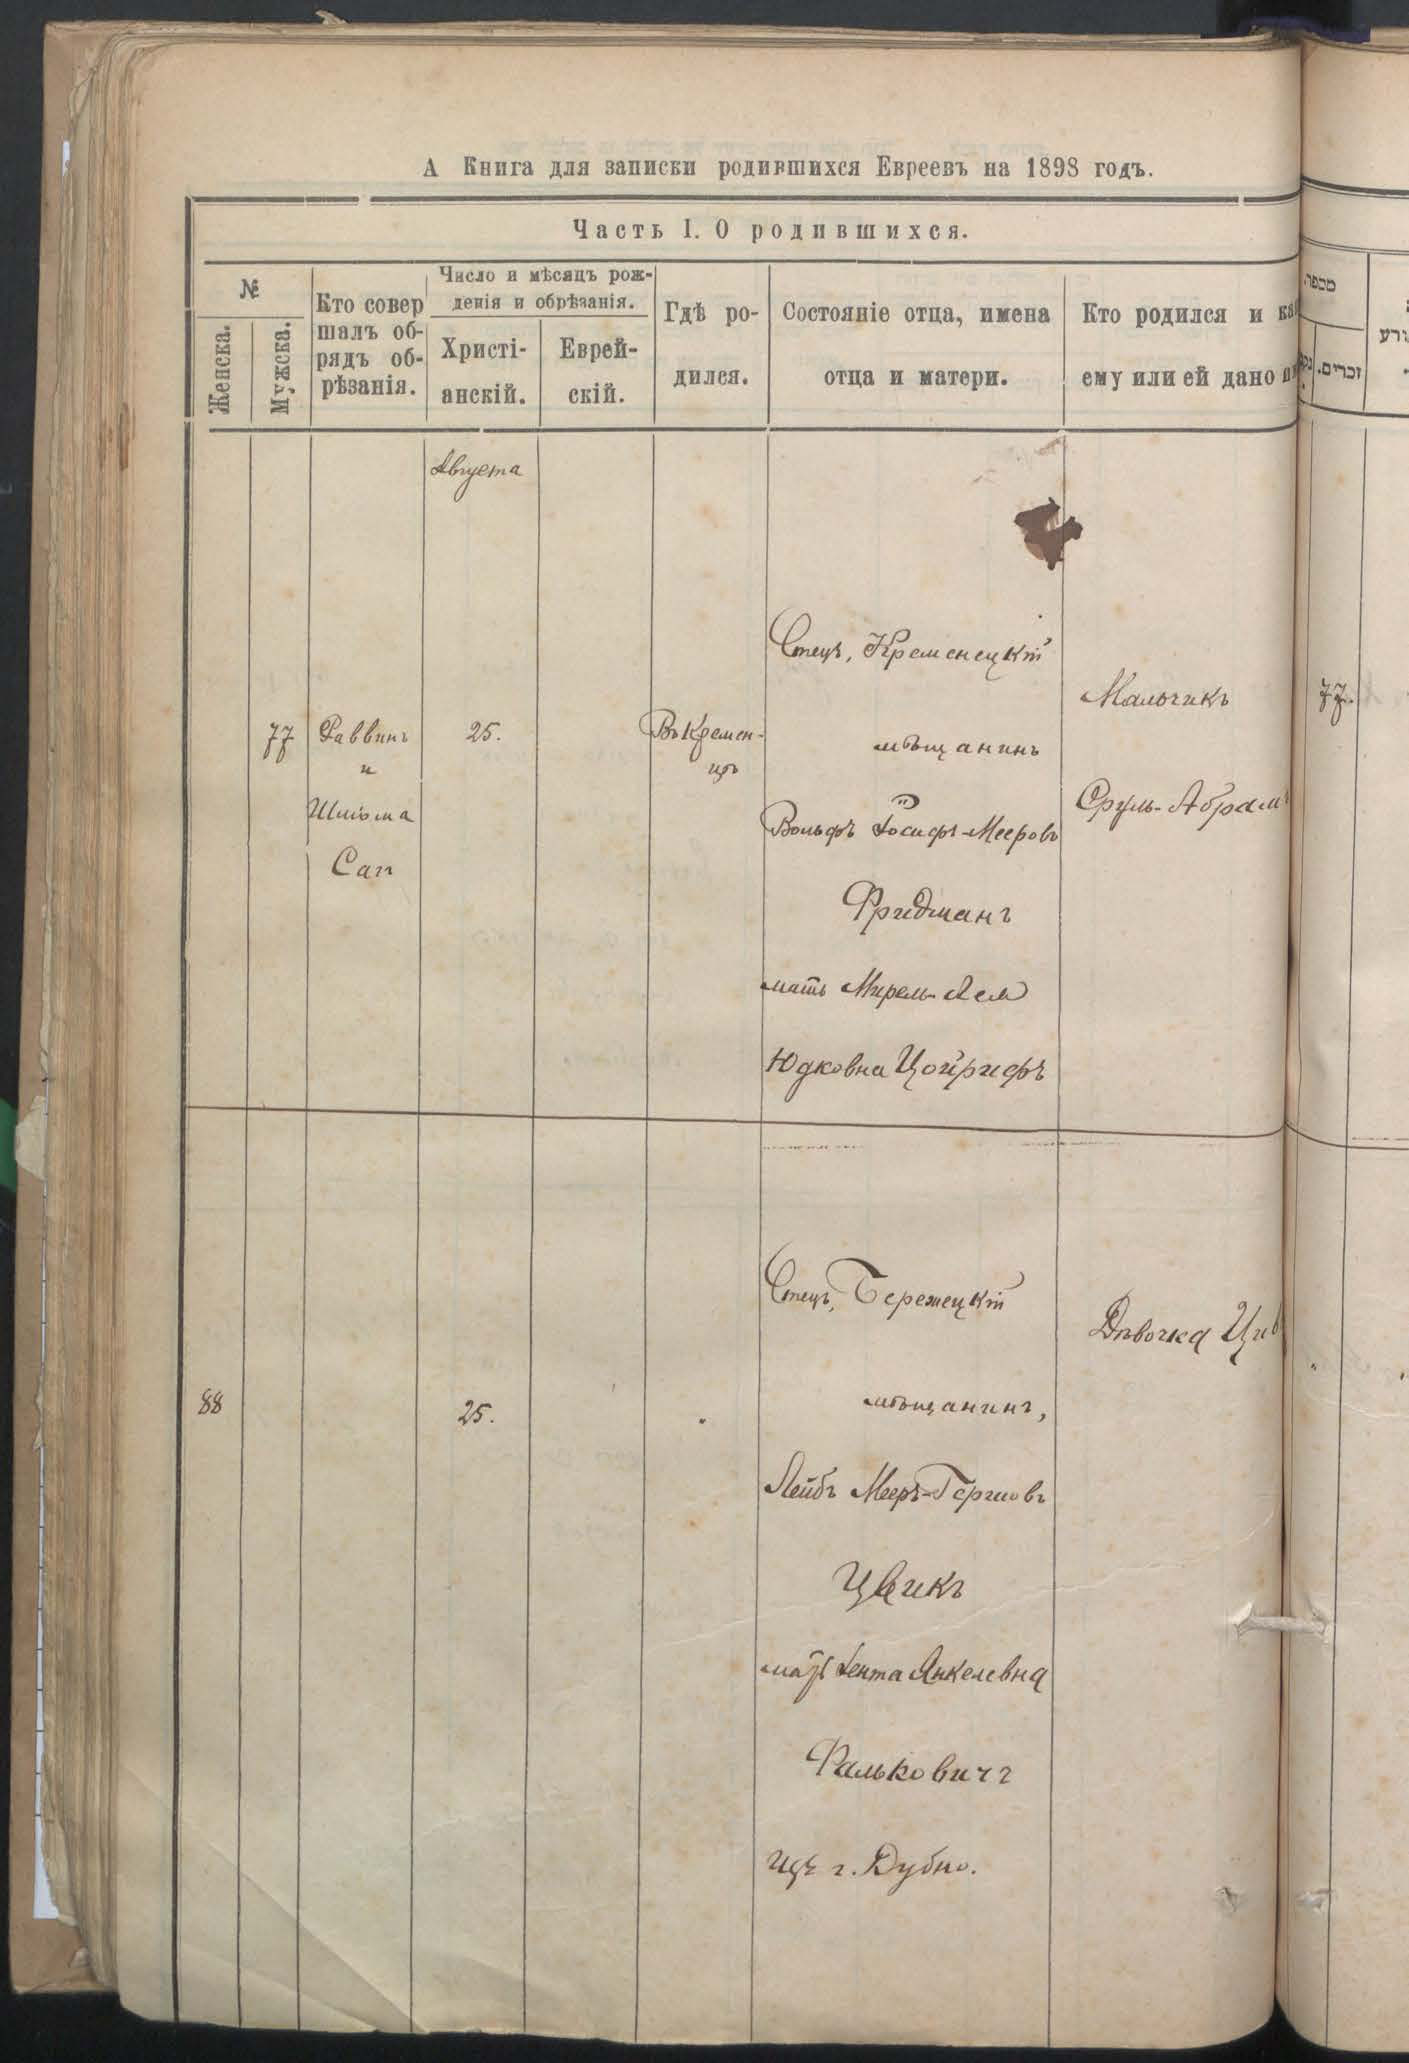 А Книга для записки родившихся Евреевъ на 1898 годъ.
Часть I. О родившихся.
№
Женска.
Мужска.
Кто совер
шалъ об-
рядъ об-
рѣзанія.
Число и мѣсяцъ рож-
денія и обрѣзанія.
Христі-
анскій.
Еврей-
скій.
Гдѣ ро-
дился.
Состояніе отца, имена
отца и матери.
Кто родился и
ему или ей дано
מספר.
זכרים.
Августа
77
Раввинъ
и
Шліома
Сап
25.
Въ Кремен-
цѣ
Отецъ, Кременецкій
мѣщанинъ
Вольфъ Іосифъ-Мееровъ
Фридманъ
мать Мирель-Лея
Юдковна Цойрифъ
Мальчикъ
Сруль-Абрамъ
77.
88
25.
Отецъ, Бережецкій
мѣщанинъ,
Лейбъ Мееръ-Гершовъ
Цвикъ
мать Іента Янкелевна
Фальковичъ
изъ г. Дубно.
Дѣвочка Цив